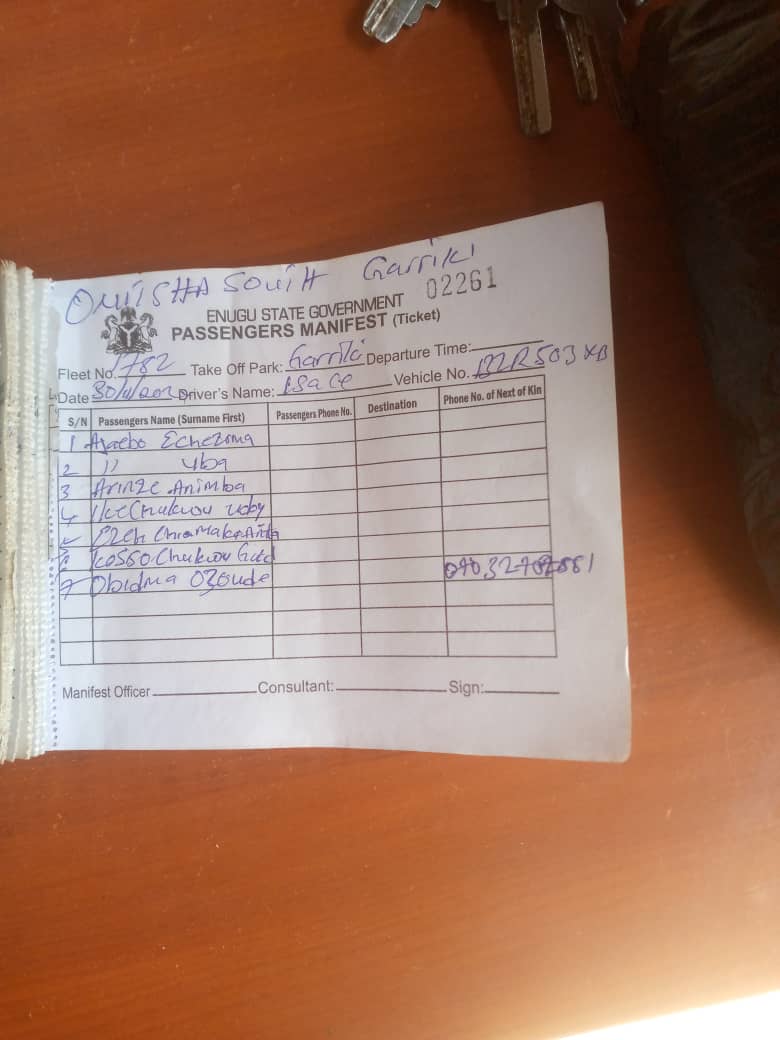 ONITSHA SOUTH Garriki
02261
ENUGU STATE GOVERNMENT
PASSENGERS MANIFEST (Ticket)
Fleet No. 1782 Take Off Park: Garriki Departure Time:
Date 30/11/202 Driver's Name: Isace Vehicle No. BZR503XB
S/N Passengers Name (Surname First) Passengers Phone No. Destination Phone No. of Next of Kin
1 Echezona
2 " uba
3 Arinze Animba
4 Ikechukwu
5 Ezeh Chiamaka Anita
6 Chukwu
7 Obidma Ozoude
Manifest Officer Consultant: Sign: